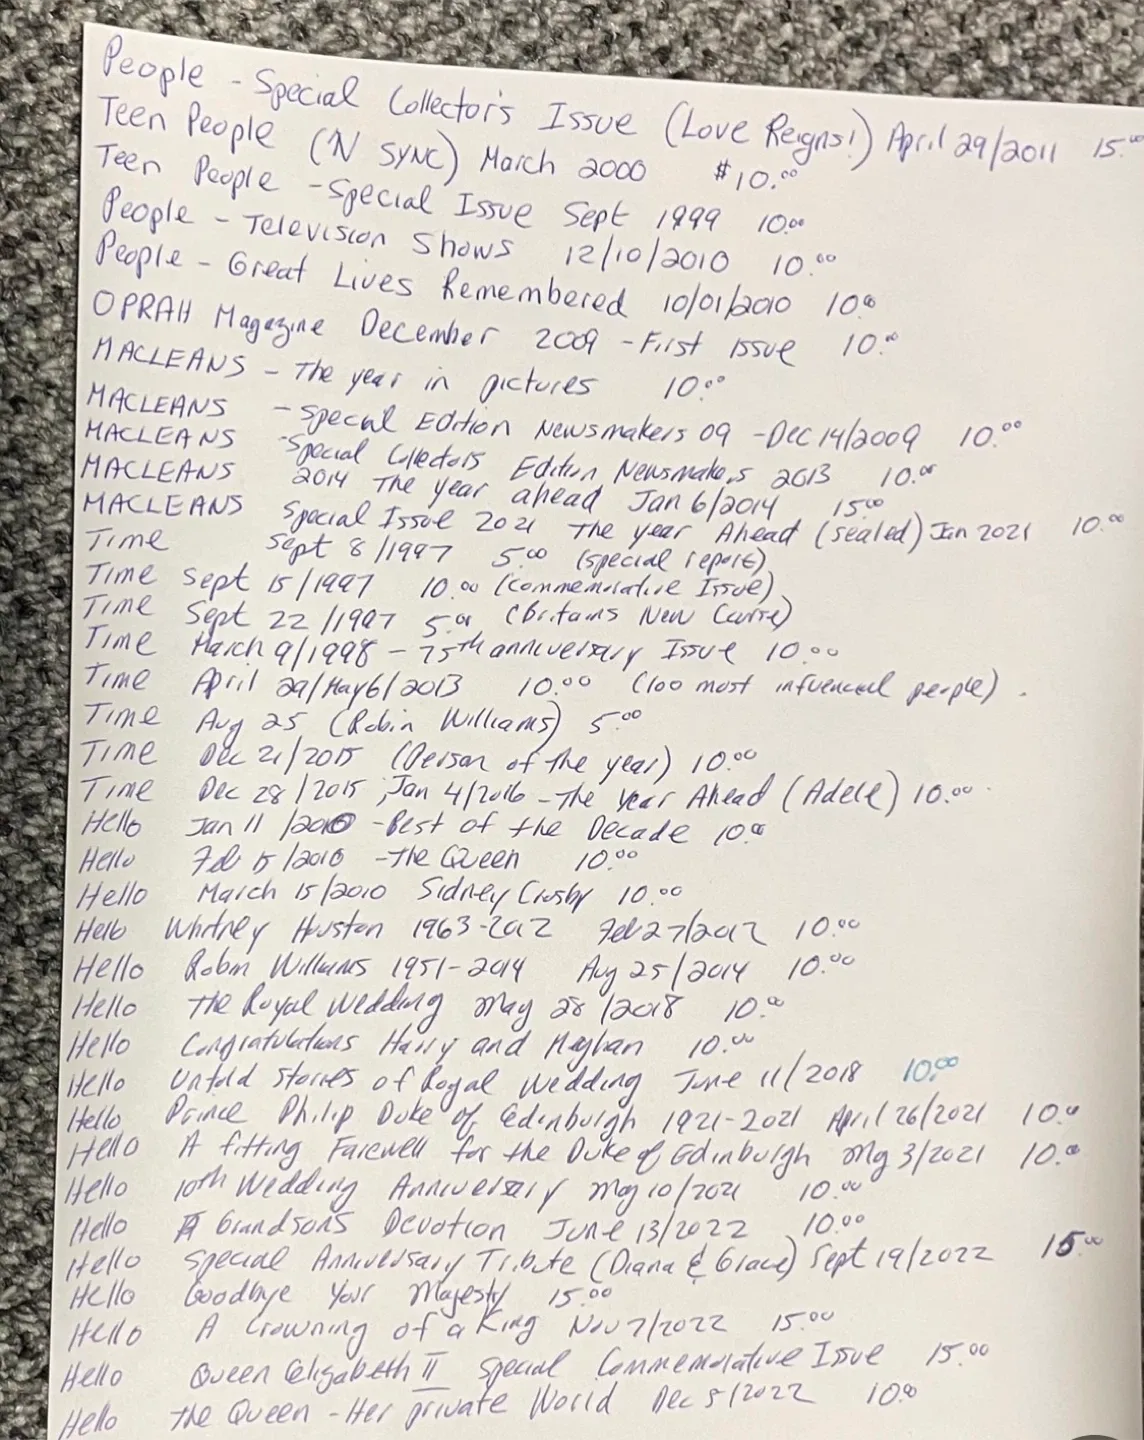 People - Special Collector's Issue (Love Reigns!) April 29/2011 15.00
Teen People (N SYNC) March 2000 $10.00
Teen People - Special Issue Sept 1999 10.00
People - Television Shows 12/10/2010 10.00
People - Great Lives Remembered 10/01/2010 10.00
OPRAH Magazine December 2009 - First issue 10.00
MACLEANS - The year in pictures 10.00
MACLEANS - Special Edition Newsmakers 09 - Dec 14/2009 10.00
MACLEANS - Special Collectors Edition Newsmakers 2013 10.00
MACLEANS 2014 The year ahead Jan 6/2014 15.00
MACLEANS Special Issue 2021 The year Ahead (sealed) Jan 2021 10.00
Time Sept 8/1997 5.00 (special report)
Time Sept 15/1997 10.00 (Commemorative Issue)
Time Sept 22/1997 5.00 (Britains New Curse)
Time March 9/1998 - 75th anniversary Issue 10.00
Time April 29/May 6/2013 10.00 (100 most influencial people).
Time Aug 25 (Robin Williams) 5.00
Time Dec 21/2015 (Person of the year) 10.00
Time Dec 28/2015, Jan 4/2016 - The Year Ahead (Adele) 10.00
Hello Jan 11/2010 - Best of the Decade 10.00
Hello Feb 15/2010 - The Queen 10.00
Hello March 15/2010 Sidney Crosby 10.00
Hello Whitney Houston 1963-2012 Feb 27/2012 10.00
Hello Robin Williams 1951-2014 Aug 25/2014 10.00
Hello The Royal Wedding May 28/2018 10.00
Hello Congratulations Harry and Meghan 10.00
Hello Untold Stories of Royal Wedding June 11/2018 10.00
Hello Prince Philip Duke of Edinburgh 1921-2021 April 26/2021 10.00
Hello A fitting Farewell for the Duke of Edinburgh My 3/2021 10.00
Hello 10th Wedding Anniversary May 10/2021 10.00
Hello A Grandsons Devotion June 13/2022 10.00
Hello Special Anniversary Tribute (Diana & Grace) Sept 19/2022 15.00
Hello Goodbye Your Majesty 15.00
Hello A Crowning of a King Nov 7/2022 15.00
Hello Queen Elizabeth II Special Commemorative Issue 15.00
Hello The Queen - Her private World Dec 5/2022 10.00